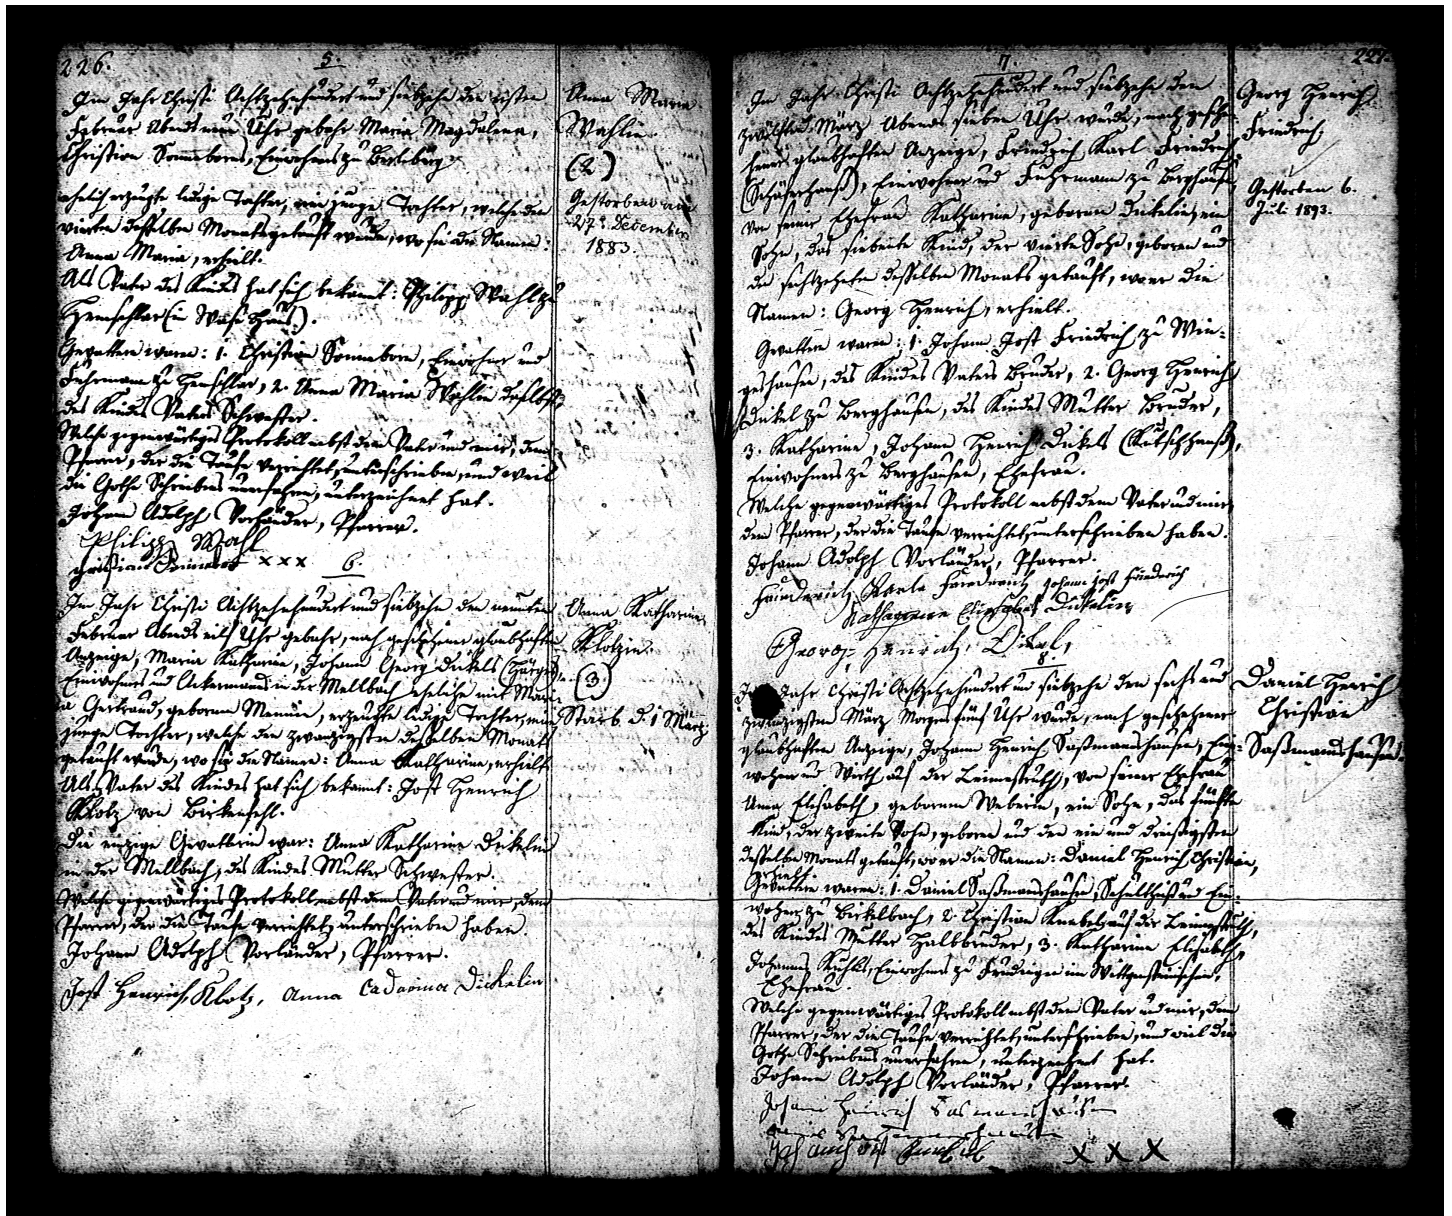 226.
5.
Im Jahr Christi Achtzehnhundert und siebzehn den ersten
Februar Abends neun Uhr gebahr Maria Magdalena,
Christian Sonneborns, Einwohners zu Berleburg
ehelich erzeugte ledige Tochter, eine junge Tochter, welche den
vierten desselben Monats getauft wurde, wo sie die Namen:
Anna Maria, erhielt.
Als Vater des Kindes hat sich bekannt: Philipp Wahl zu
Hemschlar (in Haus).
Gevattern waren: 1. Christian Sonneborn, Einwohner und
Fuhrmann zu Hemschlar, 2. Anna Maria Wahlin daselbst,
des Kindes Vaters Schwester.
Welche gegenwärtiges Protokoll nebst dem Vater und mir, dem
Pfarrer, der die Taufe verrichtet, unterschrieben, und weil
die Gothe Schreibens unerfahren, unterzeichnet hat.
Johann Adolph Vorländer, Pfarrer.
Philipp Wahl
xxx
Anna Maria
Wahlin.
(2)
Gestorben am
27. December
1883.
6.
Im Jahr Christi Achtzehnhundert und siebzehn den neunten
Februar Abends eilf Uhr gebahr, nach geschehener glaubhafter
Anzeige, Maria Katharina, Johann Georg Dickels
Einwohners und Ackermanns in der Mellbach ehelich mit Mari-
a Gertraud, geborenen, erzeugte ledige Tochter, eine
junge Tochter, welche den zwanzigsten desselben Monats
getauft wurde, wo sie die Namen: Anna Katharina, erhielt.
Als Vater des Kindes hat sich bekannt: Jost Henrich
Klotz von Birkefehl.
Die einzige Gevatterin war: Anna Katharina Dickelin
in der Mellbach, des Kindes Mutter Schwester.
Welche gegenwärtiges Protokoll nebst dem Vater und mir, dem
Pfarrer, der die Taufe verrichtet, unterschrieben haben.
Johann Adolph Vorländer, Pfarrer.
Jost Henrich Klotz, Anna Cadarina Dickelin
Anna Katharina
Klotzin.
(3)
Starb d. 1 März
227.
7.
Im Jahr Christi Achtzehnhundert und siebzehn den
zwölften März Abends sieben Uhr wurde, nach gesche-
hener glaubhafter Anzeige, Friedrich Karl Friedrich
(Schäfershans), Einwohner und Fuhrmann zu Berghausen,
von seiner Ehefrau Katharina, geborenen Dickelin, ein
Sohn, das siebente Kind, der vierte Sohn, geboren und
den sechszehnten desselben Monats getauft, wo er die
Namen: Georg Henrich, erhielt.
Gevattern waren: 1. Johann Jost Friedrich zu Win-
geshausen, des Kindes Vaters Bruder, 2. Georg Henrich
Dickel zu Berghausen, des Kindes Mutter Bruder,
3. Katharina, Johann Henrich Dickels (Kutschhans),
Einwohners zu Berghausen, Ehefrau.
Welche gegenwärtiges Protokoll nebst dem Vater und mir,
dem Pfarrer, der die Taufe verrichtet, unterschrieben haben.
Johann Adolph Vorländer, Pfarrer.
Friederich Karle Friederich Johann Jost Friederich
Katharina Elisabet Dickelin
Georg Henrich Dickel
Georg Henrich
Friedrich
Gestorben 6.
Juli 1893.
8.
Im Jahr Christi Achtzehnhundert und siebzehn den sechs und
zwanzigsten März Morgens fünf Uhr wurde, nach geschehener
glaubhafter Anzeige, Johann Henrich Saßmannshausen, Ein-
wohner und Wirth auf der Leimestruth, von seiner Ehefrau
Anna Elisabeth, geborenen Weberin, ein Sohn, das fünfte
Kind, der zweite Sohn, geboren und den ein und dreißigsten
desselben Monats getauft, wo er die Namen: Daniel Henrich Christian,
erhielt.
Gevattern waren: 1. Daniel Saßmannshausen, Schultheiß und Ein-
wohner zu Birkelbach, 2. Christian Knebel auf der Leimestruth,
des Kindes Mutter Halbbruder, 3. Katharina Elisabeth,
Johannes, Einwohners zu im Wittgensteinischen,
Ehefrau.
Welche gegenwärtiges Protokoll nebst dem Vater und mir, dem
Pfarrer, der die Taufe verrichtet, unterschrieben, und weil die
Gothe Schreibens unerfahren, unterzeichnet hat.
Johann Adolph Vorländer, Pfarrer.
Johann Heinrich Sasmanshausen
X X X
Daniel Henrich
Christian
Saßmannshausen.